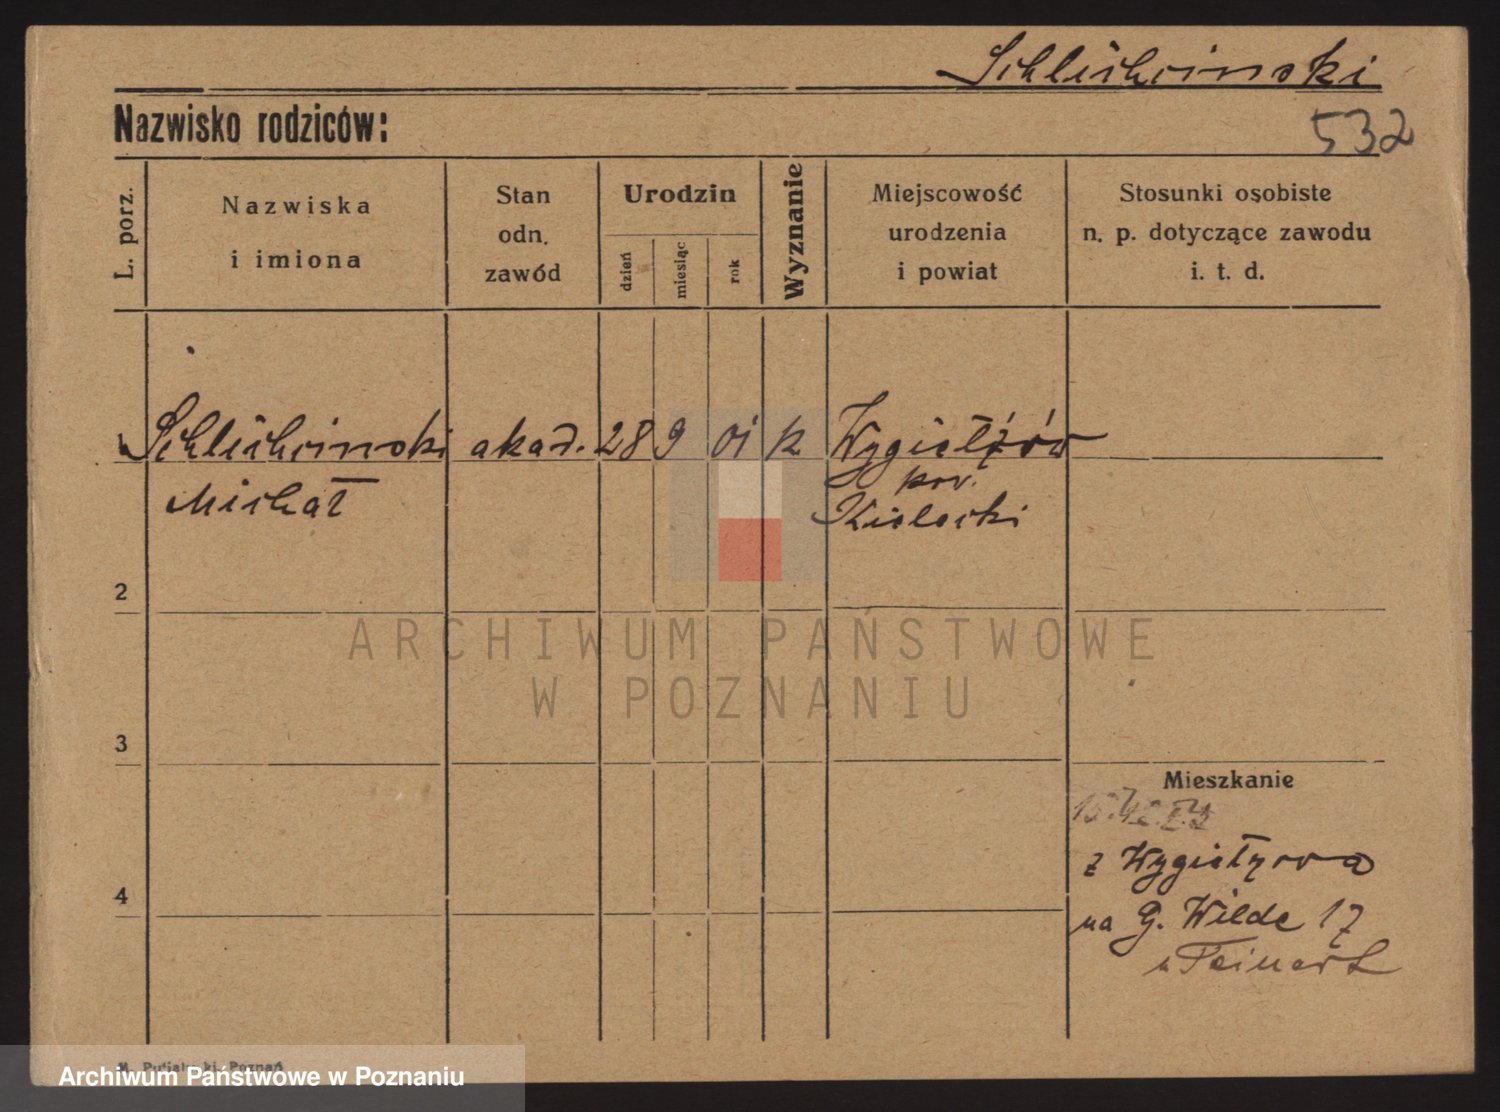 Schlichcinski
Nazwisko rodziców:
532
L. porz.
Nazwiska
i imiona
Stan
odn.
zawód
Urodzin
dzień
miesiąc
rok
Wyznanie
Miejscowość
urodzenia
i powiat
Stosunki osobiste
n. p. dotyczące zawodu
i. t. d.
1 Schlichcinski akad. 28 9 01 k Wygiełzów
Michał
pow.
Kielecki
2
ARCHIWUM PAŃSTWOWE
W POZNANIU
3
Mieszkanie
z Wygiełzowa
4
na G. Wilde 17
u
Poznań
Archiwum Państwowe w Poznaniu